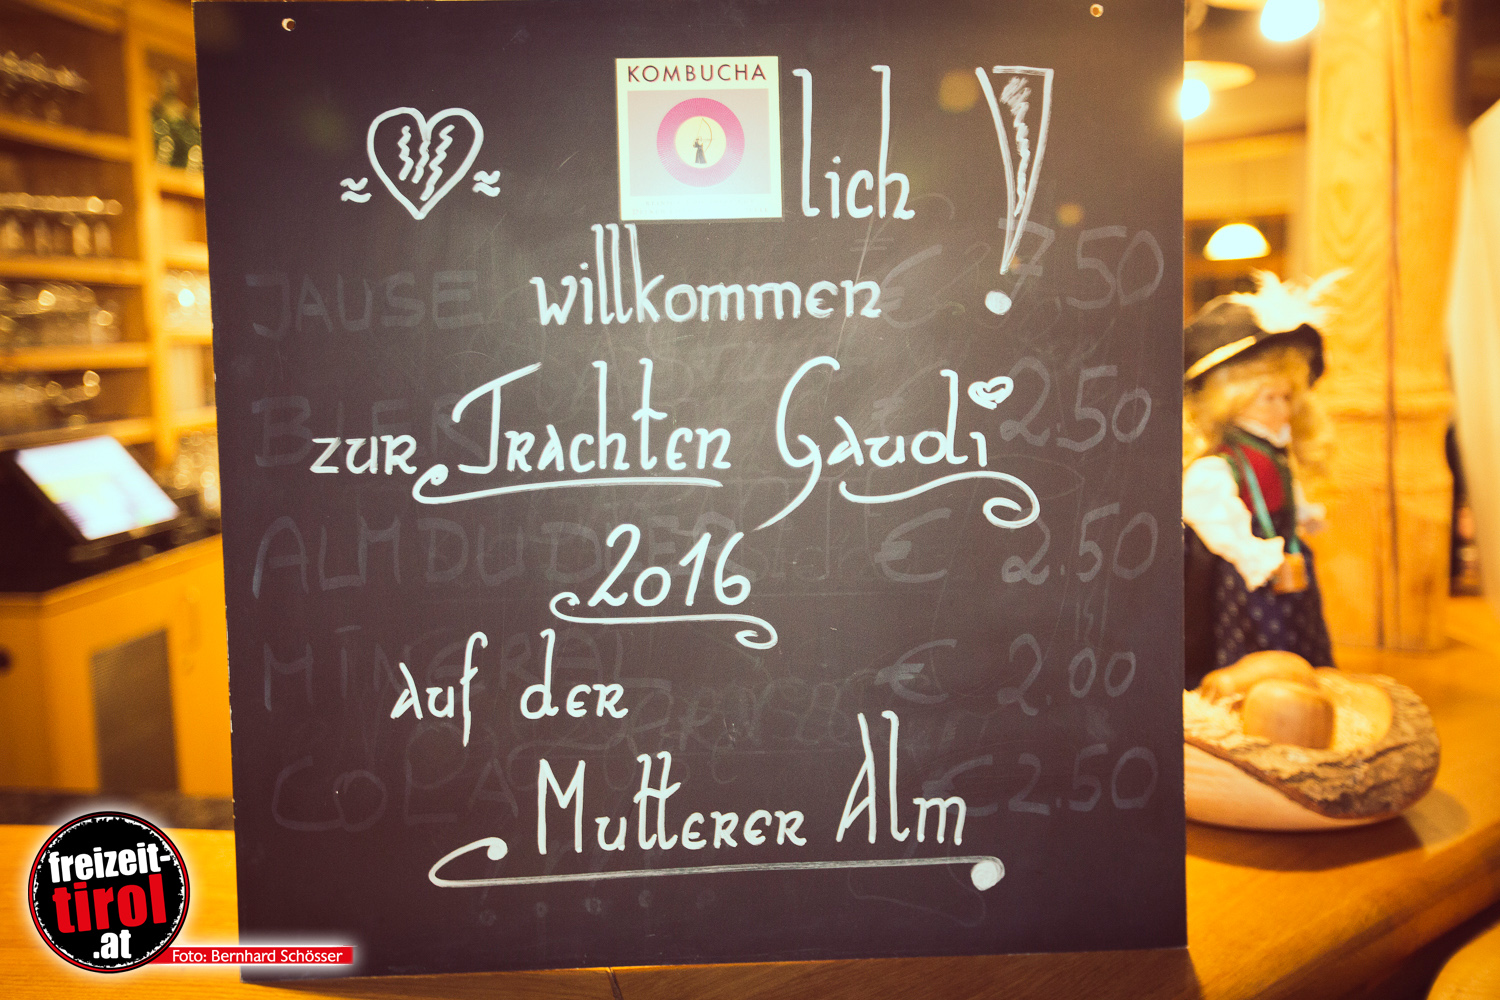 KOMBUCHA
lich !
willkommen
zur Trachten Gaudi
2016
auf der
Mutterer Alm
JAUSE € 7,50
BIER € 2.50
ALMDUDLER € 2.50
MINERAL € 2.00
COLA € 2.50
freizeit-
tirol
.at
Foto: Bernhard Schösser